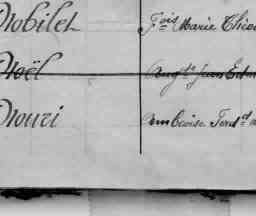 Nobilet Fçois Marie Théo
Noël Augte Jean Edm
Nouri Ambroise Ferdd